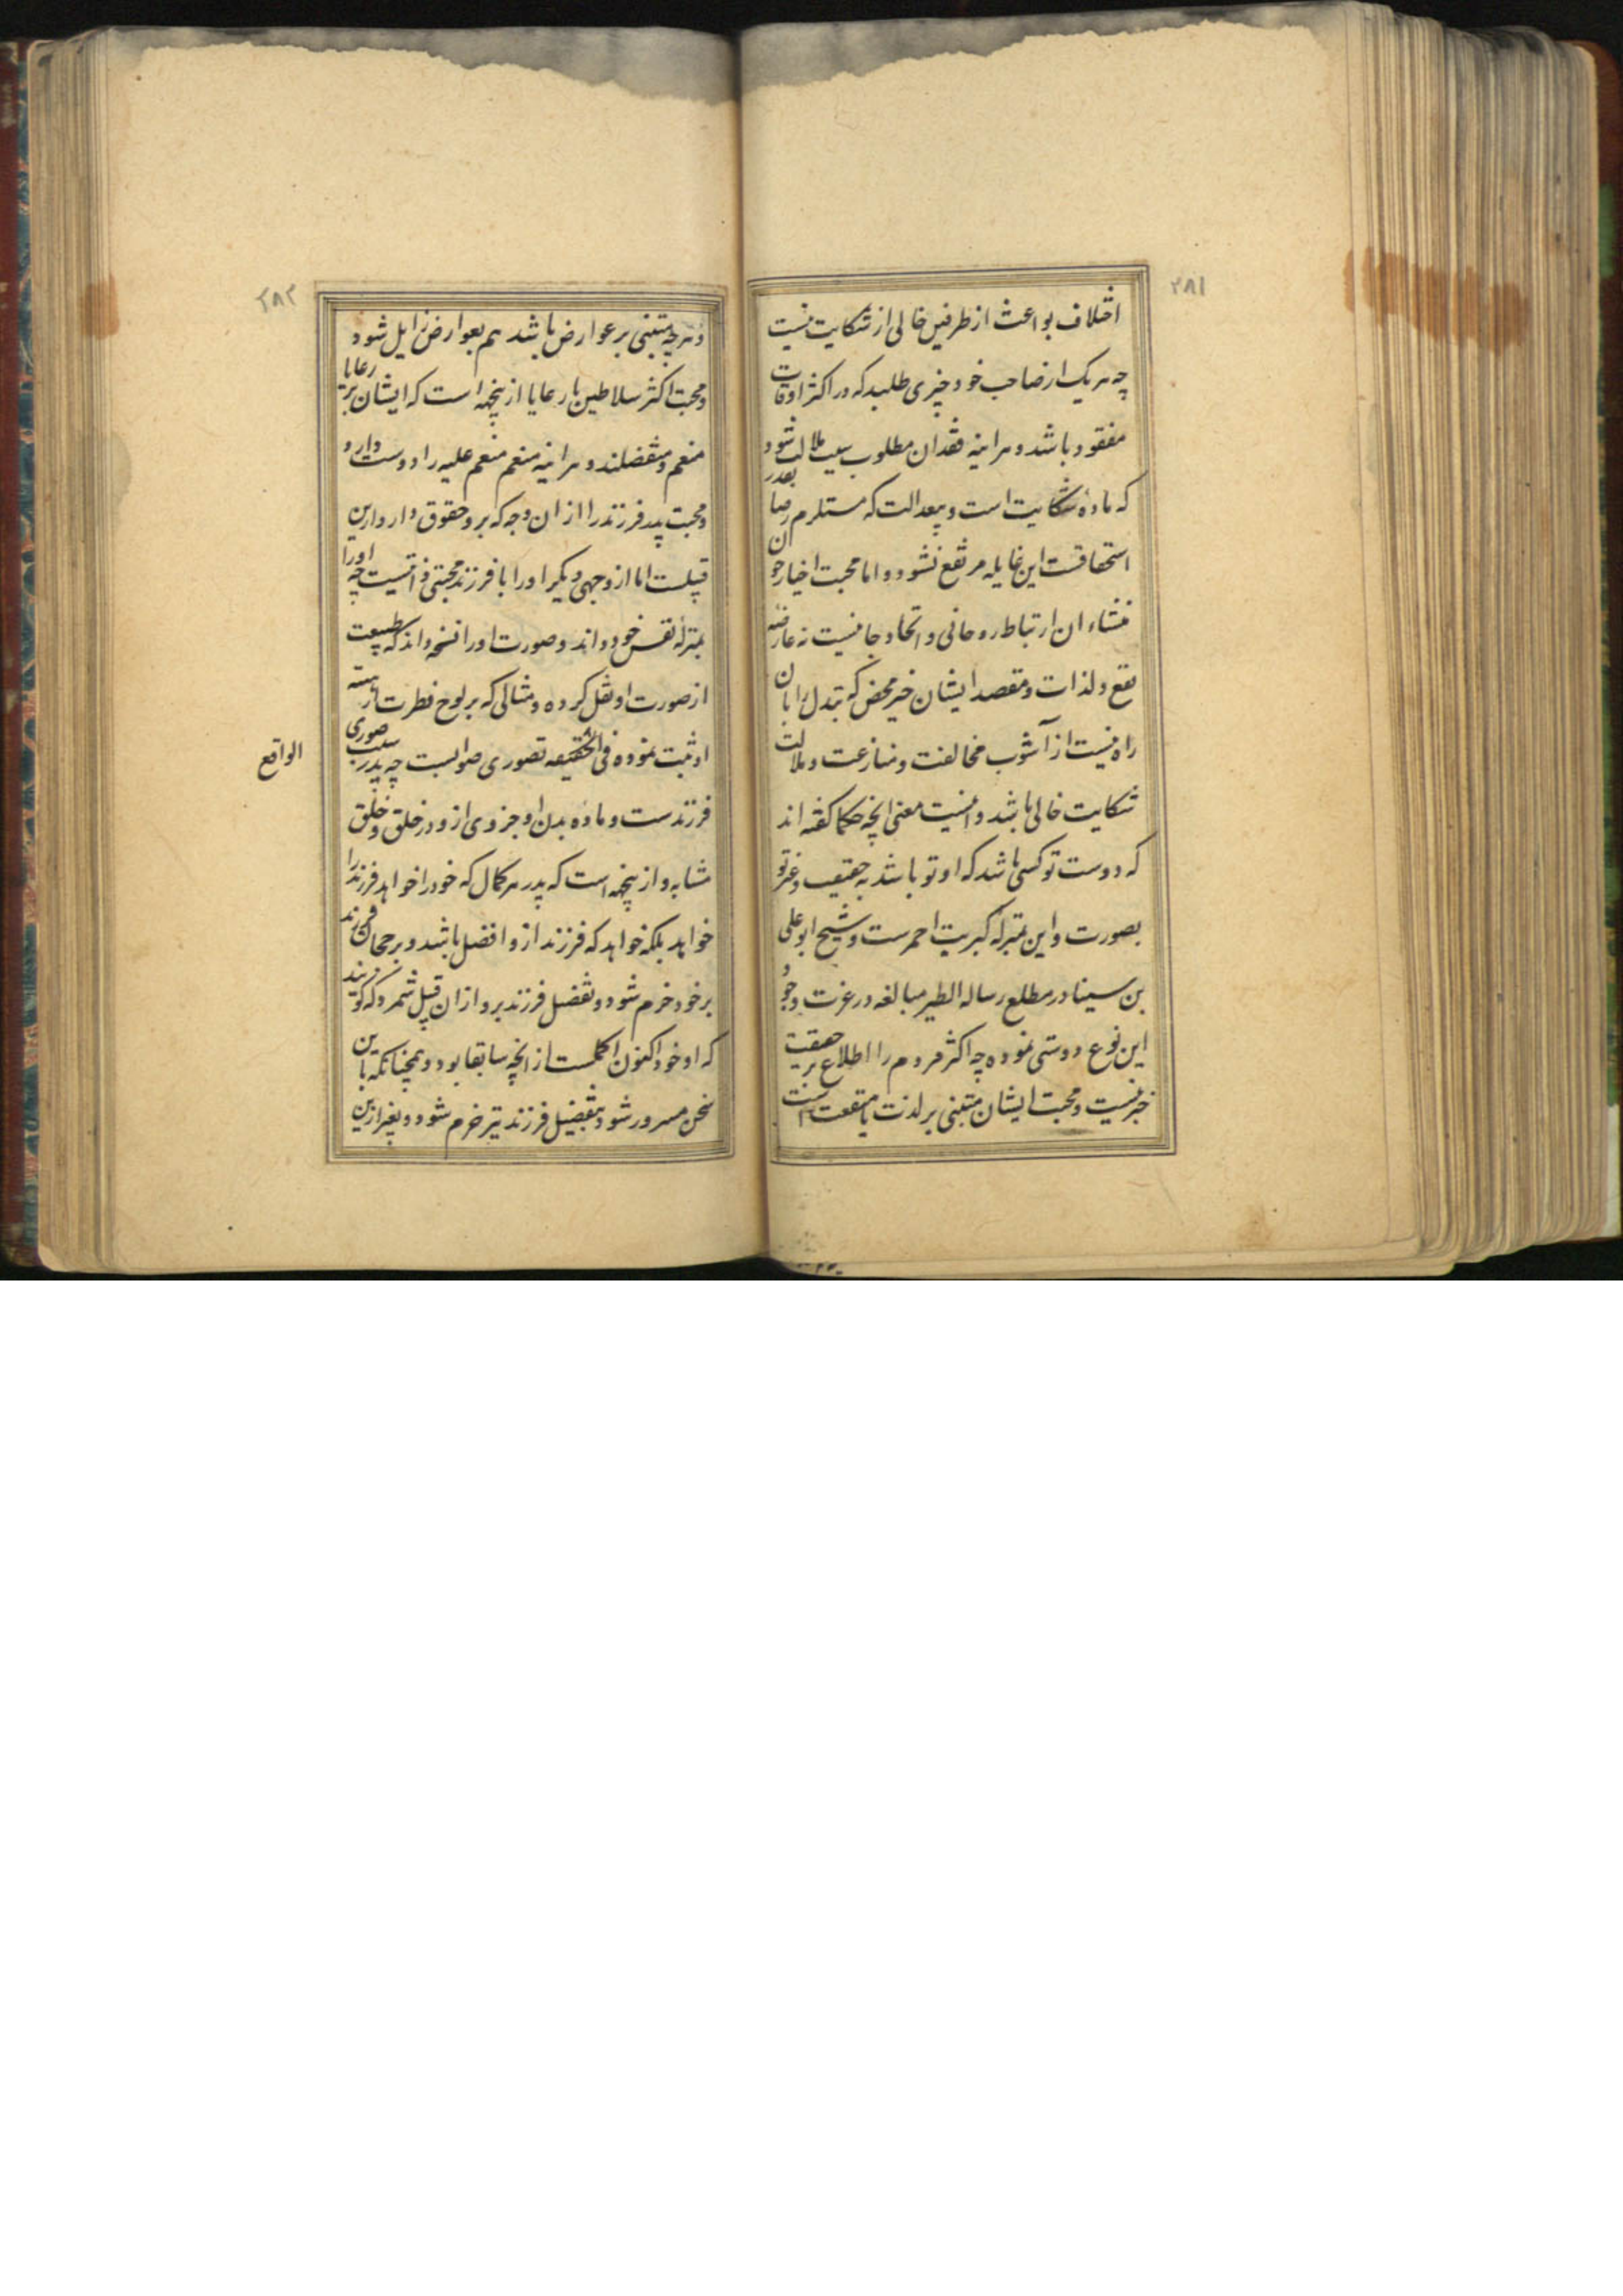 ۲۸۱
اختلاف بواعث از طرفین خالی از شکایت نیست
چه هر یک از صاحب خود چیزی طلبد که در اکثر اوقات
مفقود باشد و هر اینه فقدان مطلوب سبب ملالت شود
که ماده شکایت است و بعدالت که مستلزم رضا بقدر
استحقاقست این غایله مرتفع نشود و اما محبت اخیار چون
منشاء ان ارتباط روحانی و اتحاد جانیست نه عارضه
نفع و لذات و مقصد ایشان خیر محض که تبدل را بان
راه نیست از آشوب مخالفت و منازعت و ملالت
شکایت خالی باشد و اینست معنی انچه حکما گفته اند
که دوست تو کسی باشد که او تو باشد به حقیقت و غیر تو
بصورت و این بمنزله کبریت احمرست و شیخ ابو علی
بن سینا در مطلع رساله الطیر مبالغه در عزت وجود
این نوع دوستی نموده چه اکثر مردم را اطلاع بر حقیقت
خیر نیست و محبت ایشان مبتنی بر لذت یا منفعت است
۲۸۲
و هرچه مبتنی بر عوارض باشد هم بعوارض زایل شود
و محبت اکثر سلاطین با رعایا ازینجهه است که ایشان بر رعایا
منعم و متفضلند و هر اینه منعم منعم علیه را دوست دارد
و محبت پدر فرزند را از ان وجه که برو حقوق دارد ازین
قبیلست اما از وجهی دیگر او را با فرزند محبتی ذاتیست چه او را
بمنزله نفس خود داند و صورت او را نسخه داند که طبیعت
از صورت او نقل کرده و مثالی که بر لوح فطرت از هیئة
او ثبت نموده فی الحقیقه تصوری صوابست چه پدر سبب صوری
الواقع
فرزندست و ماده بدن او جزوی ازو و در خلق و خلق
مشابه و ازینجهه است که پدر هر کمال که خود را خواهد فرزند را
خواهد بلکه خواهد که فرزند ازو افضل باشد و برجحان فرزند
بر خود خرم شود و تفضل فرزند برو از ان قبیل شمرد که گویند
که او خود اکنون اکملست از انچه سابقا بود و همچنانکه باین
سخن مسرور شود بتفضیل فرزند نیز خرم شود و بغیر ازین